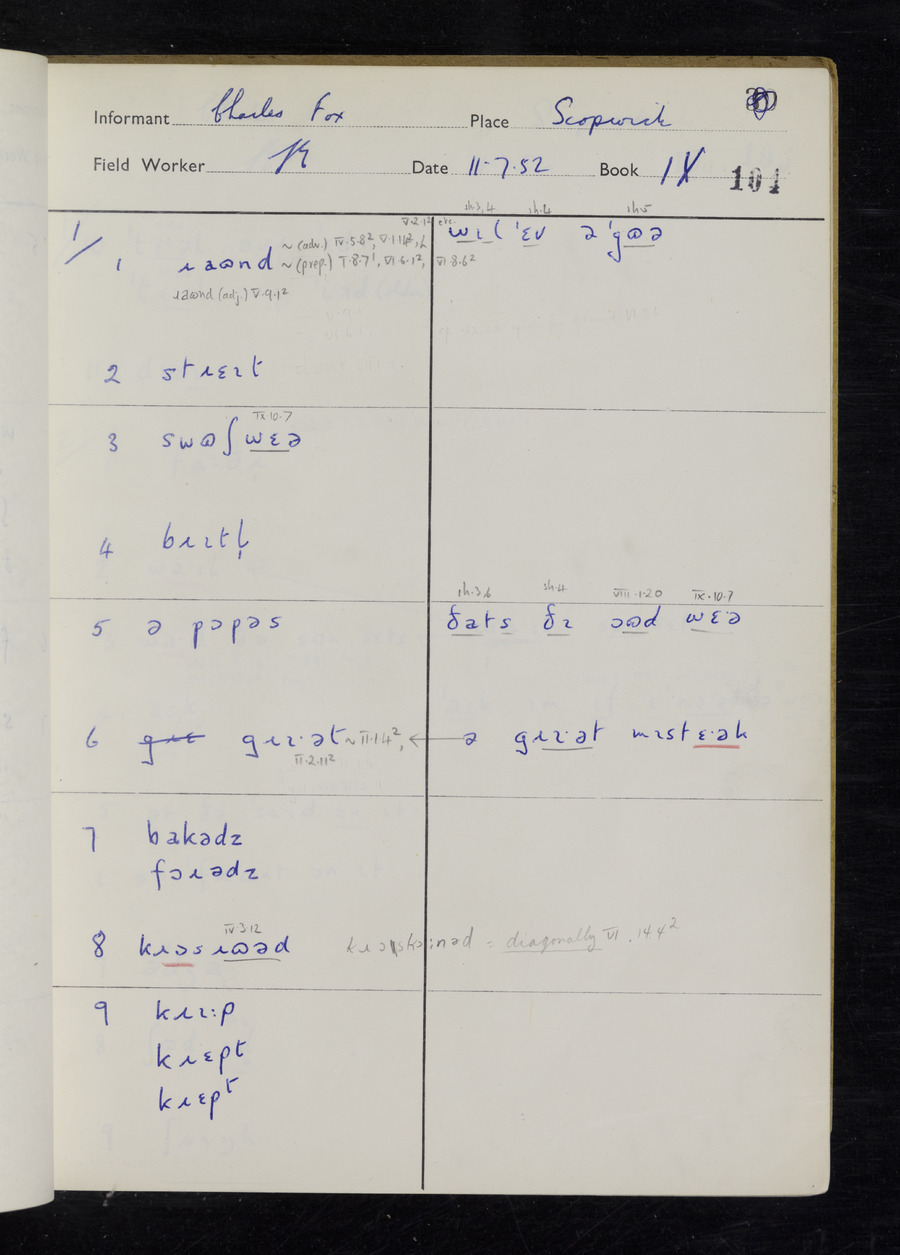 Informant Charles Fox Place Scopwick
Field Worker Date 11-7-52 Book IX 104
sh.3,4 sh.4 sh.5
V.2.1² etc. wɪl 'ɛv ə'gɷə
1/
1 ɹaɷnd ~ (adv.) IV.5.8², V.1.14²,
~ (prep.) I.8.7¹, VI.6.1², VI.8.6²
ɹaɷnd (adj.) V.9.1²
2 stɹɛɪt
IX.10.7
3 swɷʃwɛə
4 bɹɪtl̩
sh.3,6 sh.4 VIII.1.20 IX.10.7
5 ə pɔpəs ðats ðɪ ɔɷd wɛə
6 gɹɪ·ət ~ II.1.4², ← ə gɹɪ·ət mɪstɛ·ək
II.2.11²
7 bakədz
fɔɹədz
IV.3.12
8 kɹɔsɹɷəd kɹɔskɔ:nəd = diagonally VI.14.4²
9 kɹɪ:p
kɹɛpt
kɹɛpᵗ